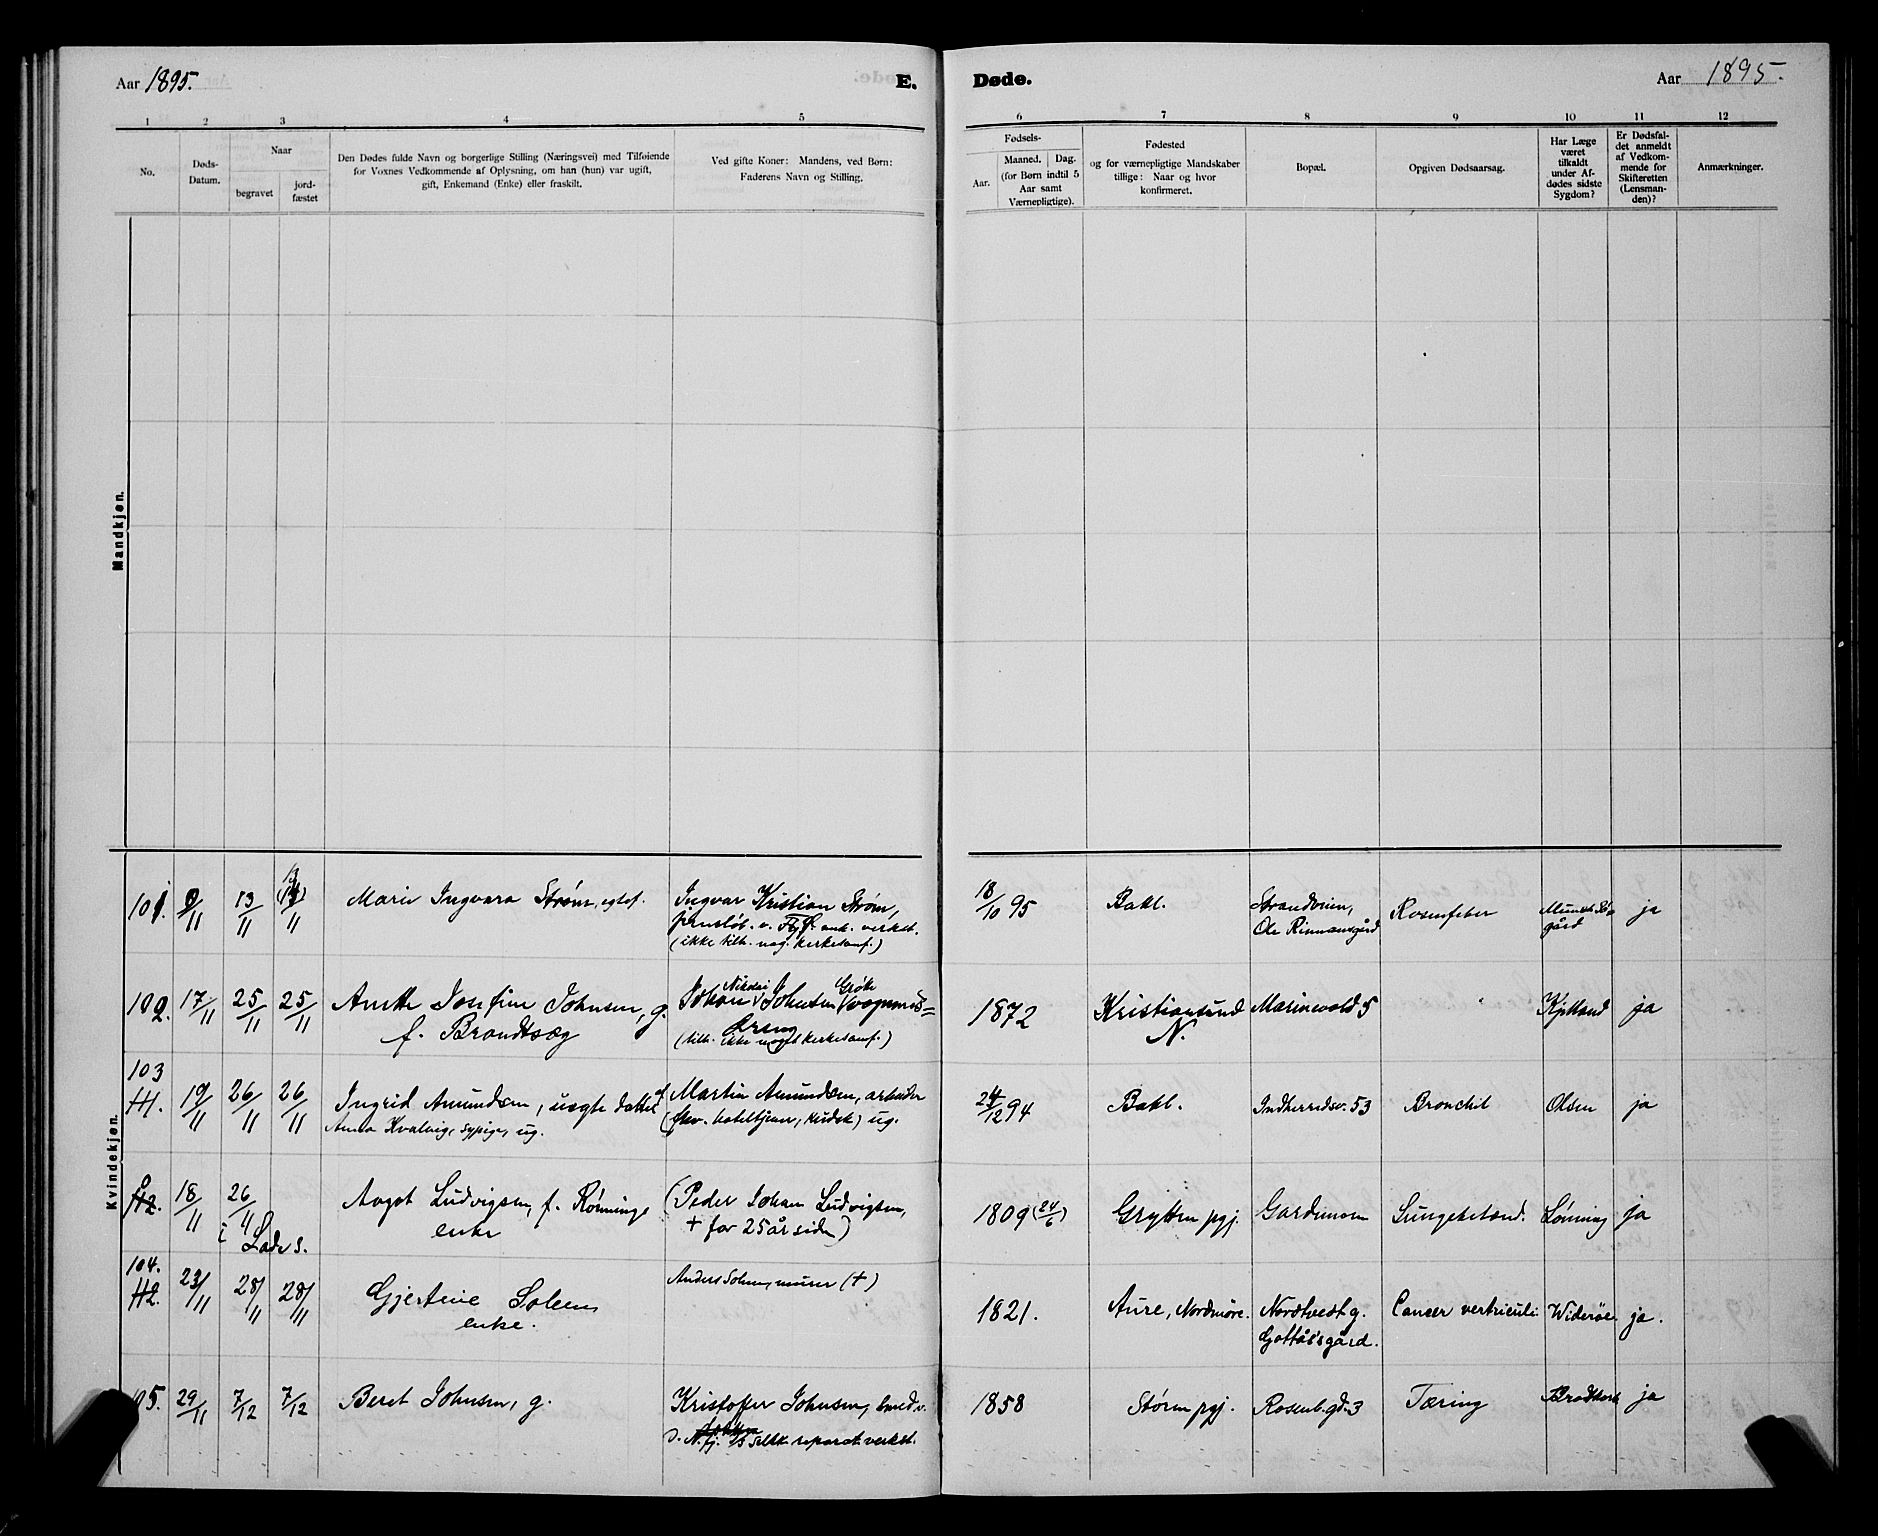 Aar 1895.
E.
Døde.
Aar 1895.
1 2 3 4 5 6 7 8 9 10 11 12
No.
Døds-
Datum.
Naar
begravet
jord-
fæstet
Den Dødes fulde Navn og borgerlige Stilling (Næringsvei) med Tilføiende
for Voxnes Vedkommende af Oplysning, om han (hun) var ugift,
gift, Enkemand (Enke) eller fraskilt.
Ved gifte Koner: Mandens, ved Børn:
Faderens Navn og Stilling.
Fødsels-
Aar.
Maaned. Dag.
(for Børn indtil 5
Aar samt
Værnepligtige).
Fødested
og for værnepligtige Mandskaber
tillige: Naar og hvor
konfirmeret.
Bopæl.
Opgiven Dødsaarsag.
Har Læge
været
tilkaldt
under Af-
dødes sidste
Sygdom?
Er Dødsfal-
det anmeldt
af Vedkom-
mende for
Skifteretten
(Lensman-
den)?
Anmærkninger.
Mandkjøn.
Kvindekjøn.
101. 9/11 13/11 13/11
Marie Ingvara Strøm, egtef.
Ingvar Kristian Strøm,
(ikke tilh. nog. kirkesamf.)
18/10 95
Bakl.
Strandveien,
Ole Rinnansgård
Rosenfeber
gård
ja
102. 17/11 25/11 25/11
Anette Josefine Johnsen, g.
f. Brandtsæg
Johan Nikolai Johnsen
(tilh. ikke noget kirkesamf.)
1872
Kristiansund
N.
Marinevold 5
Kjelland
ja
103
111. 19/11 26/11 26/11
Ingrid Amundsen, uægte datter af
Anna Kvalvig, sypige, ug.
Martin Amundsen, arbeider
(fhv. hoteltjener, kudsk) ug.
24/12 94
Bakl.
Indherredsv. 53
Bronchit
Olsen
ja
112. 18/11 26/11
i Lade s.
Aagot Ludvigsen, f. Rønning
enke
(Peder Johan Ludvigsen,
+ for 25 år siden)
1809 (24/6)
Grytten pgj.
Gardemoen
Lungebetænd.
Lønning
ja
104.
112. 23/11 28/11 28/11
Gjertine Solem
enke.
Anders Solem, murer (+)
1821.
Aure, Nordmøre.
Nordtvedt g.
Gottåsgård.
Cancer ventriculi
Widerøe
ja.
105. 29/11 7/12 7/12
Beret Johnsen, g.
Kristoffer Johnsen, smed v.
reparat. verkst.
1858
Støren pgj.
Rosenb. gd. 3
Tæring
Brodtkorb
ja